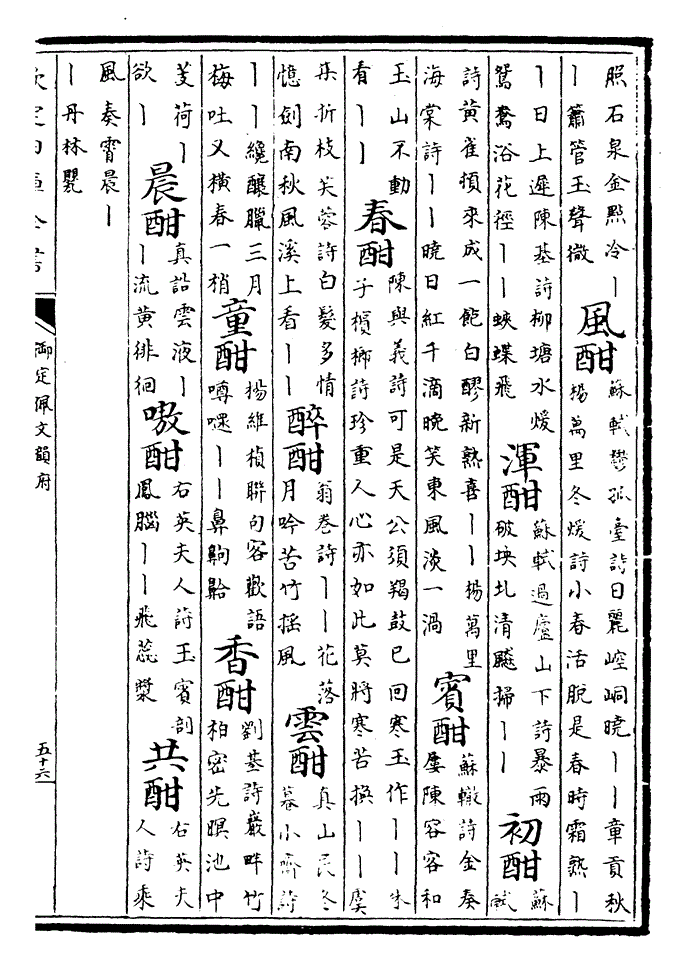 照石泉金㸃冷丨
丨簫管玉聲微
風酣
蘇軾鬱孤臺詩日麗崆峒曉丨丨章貢秋
楊萬里冬煖詩小春活脫是春時霜熟丨
丨日上遲陳基詩柳塘水煖
鴛鴦浴花徑丨丨蛺蝶飛
渾酣
蘇軾過廬山下詩暴雨
破坱圠清飈掃丨丨
初酣
蘇
軾
詩黄雀頃來成一飽白醪新熟喜丨丨楊萬里
海棠詩丨丨曉日紅千滴晚笑東風淡一渦
賓酣
蘇轍詩金奏
屢陳容容和
玉山不動
看丨丨
春酣
陳與義詩可是天公須羯鼓已回寒玉作丨丨朱
子檳榔詩珍重人心亦如此莫將寒苦換丨丨虞
集折枝芙蓉詩白髮多情
憶劍南秋風溪上看丨丨
醉酣
翁卷詩丨丨花落
月吟苦竹揺風
雲酣
真山民冬
暮小齋詩
丨丨纔釀臘三月
梅吐又横春一梢
童酣
楊維楨聯句客歡語
噂㗳丨丨鼻齁
香酣
劉基詩巖畔竹
柏密先暝池中
芰荷丨
欲丨
晨酣
真誥雲液丨
丨流黄徘徊
嗷酣
右英夫人詩玉賓剖
鳳腦丨丨飛蕊漿
共酣
右英夫
人詩乘
風奏霄晨丨
丨丹林甖
欽定四庫全書
御定佩文韻府
五十六